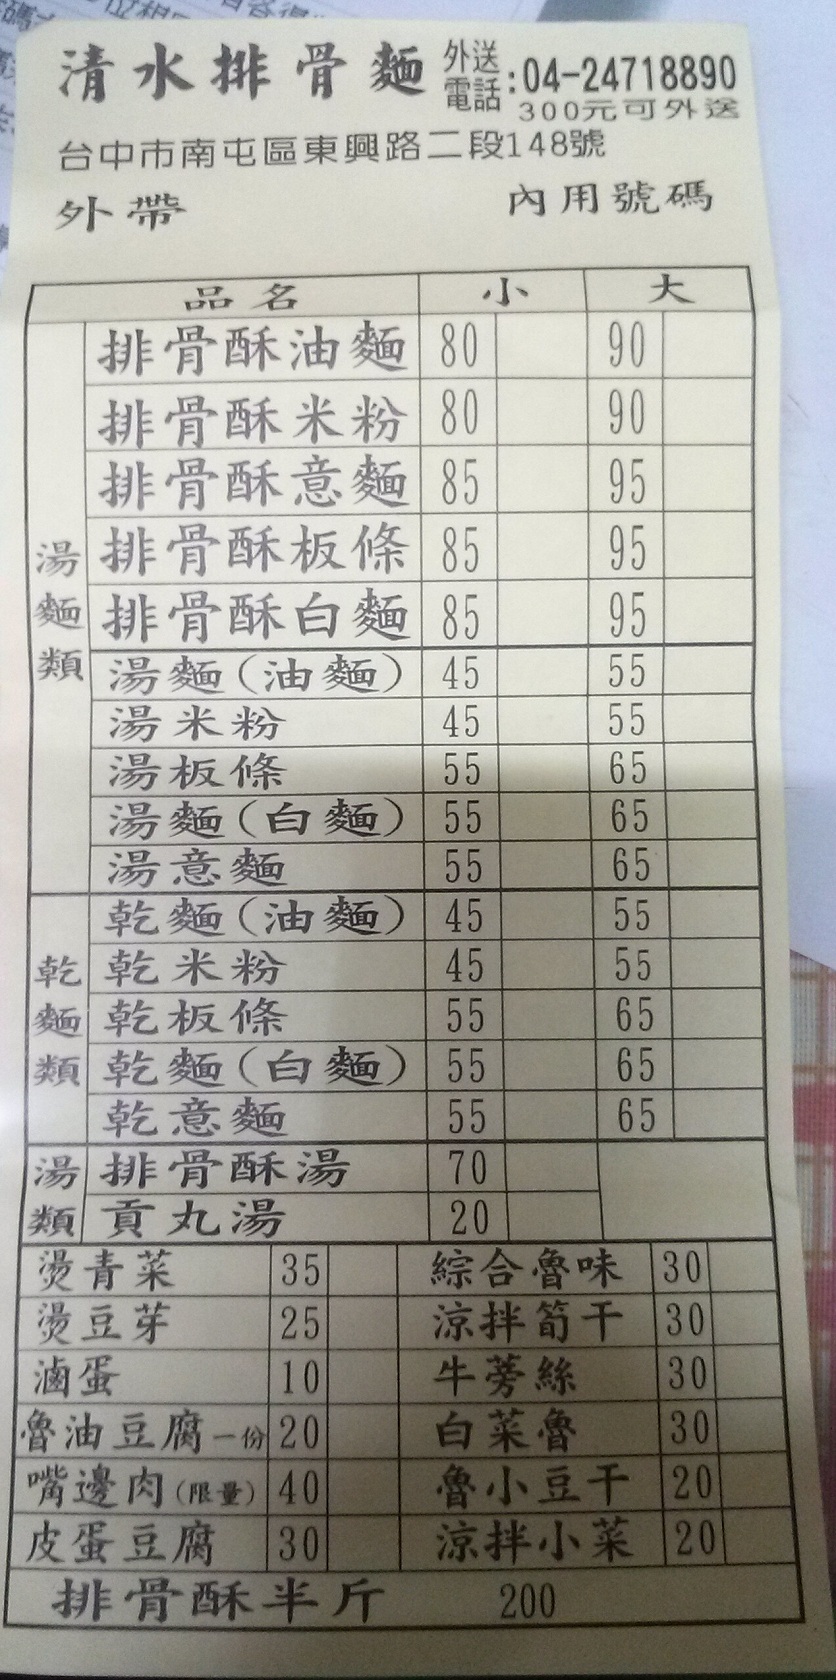 清水排骨麵 外送電話:04-24718890
300元可外送
台中市南屯區東興路二段148號
外帶 內用號碼
品名 小 大
湯麵類
排骨酥油麵 80 90
排骨酥米粉 80 90
排骨酥意麵 85 95
排骨酥板條 85 95
排骨酥白麵 85 95
湯麵(油麵) 45 55
湯米粉 45 55
湯板條 55 65
湯麵(白麵) 55 65
湯意麵 55 65
乾麵類
乾麵(油麵) 45 55
乾米粉 45 55
乾板條 55 65
乾麵(白麵) 55 65
乾意麵 55 65
湯類
排骨酥湯 70
貢丸湯 20
燙青菜 35 綜合魯味 30
燙豆芽 25 涼拌筍干 30
滷蛋 10 牛蒡絲 30
魯油豆腐一份 20 白菜魯 30
嘴邊肉(限量) 40 魯小豆干 20
皮蛋豆腐 30 涼拌小菜 20
排骨酥半斤 200